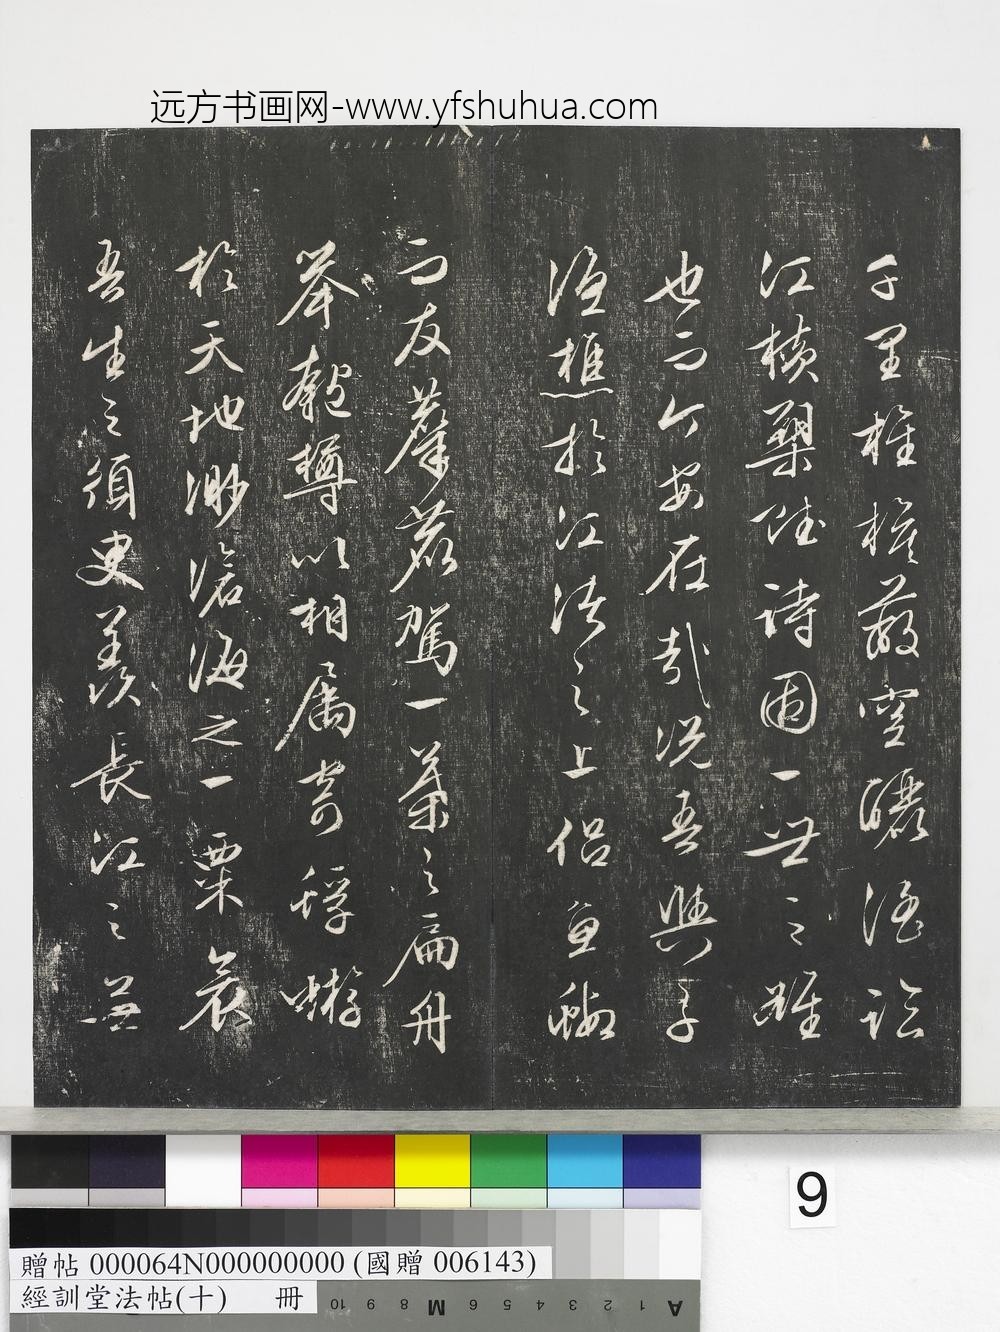 远方书画网-www.yfshuhua.com
千里旌旗蔽空釃酒臨
江橫槊賦詩固一世之雄
也而今安在哉況吾與子
漁樵於江渚之上侶魚蝦
而友麋鹿駕一葉之扁舟
舉匏樽以相屬寄蜉蝣
於天地渺滄海之一粟哀
吾生之須臾羨長江之無
9
贈帖 000064N000000000 (國贈 006143)
經訓堂法帖(十) 冊
10 9 8 M 6 5 4 3 2 1 A